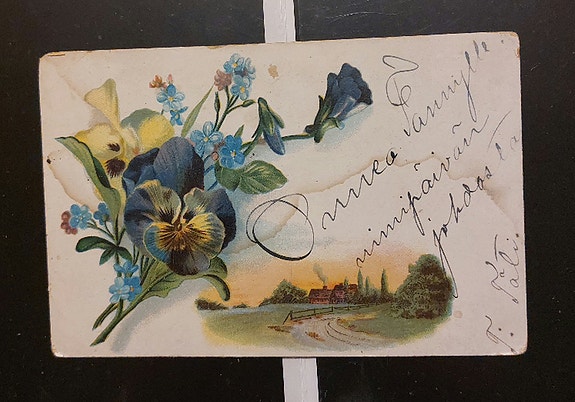 Onnea Fannylle
nimipäivän
johdosta
T. Täti.